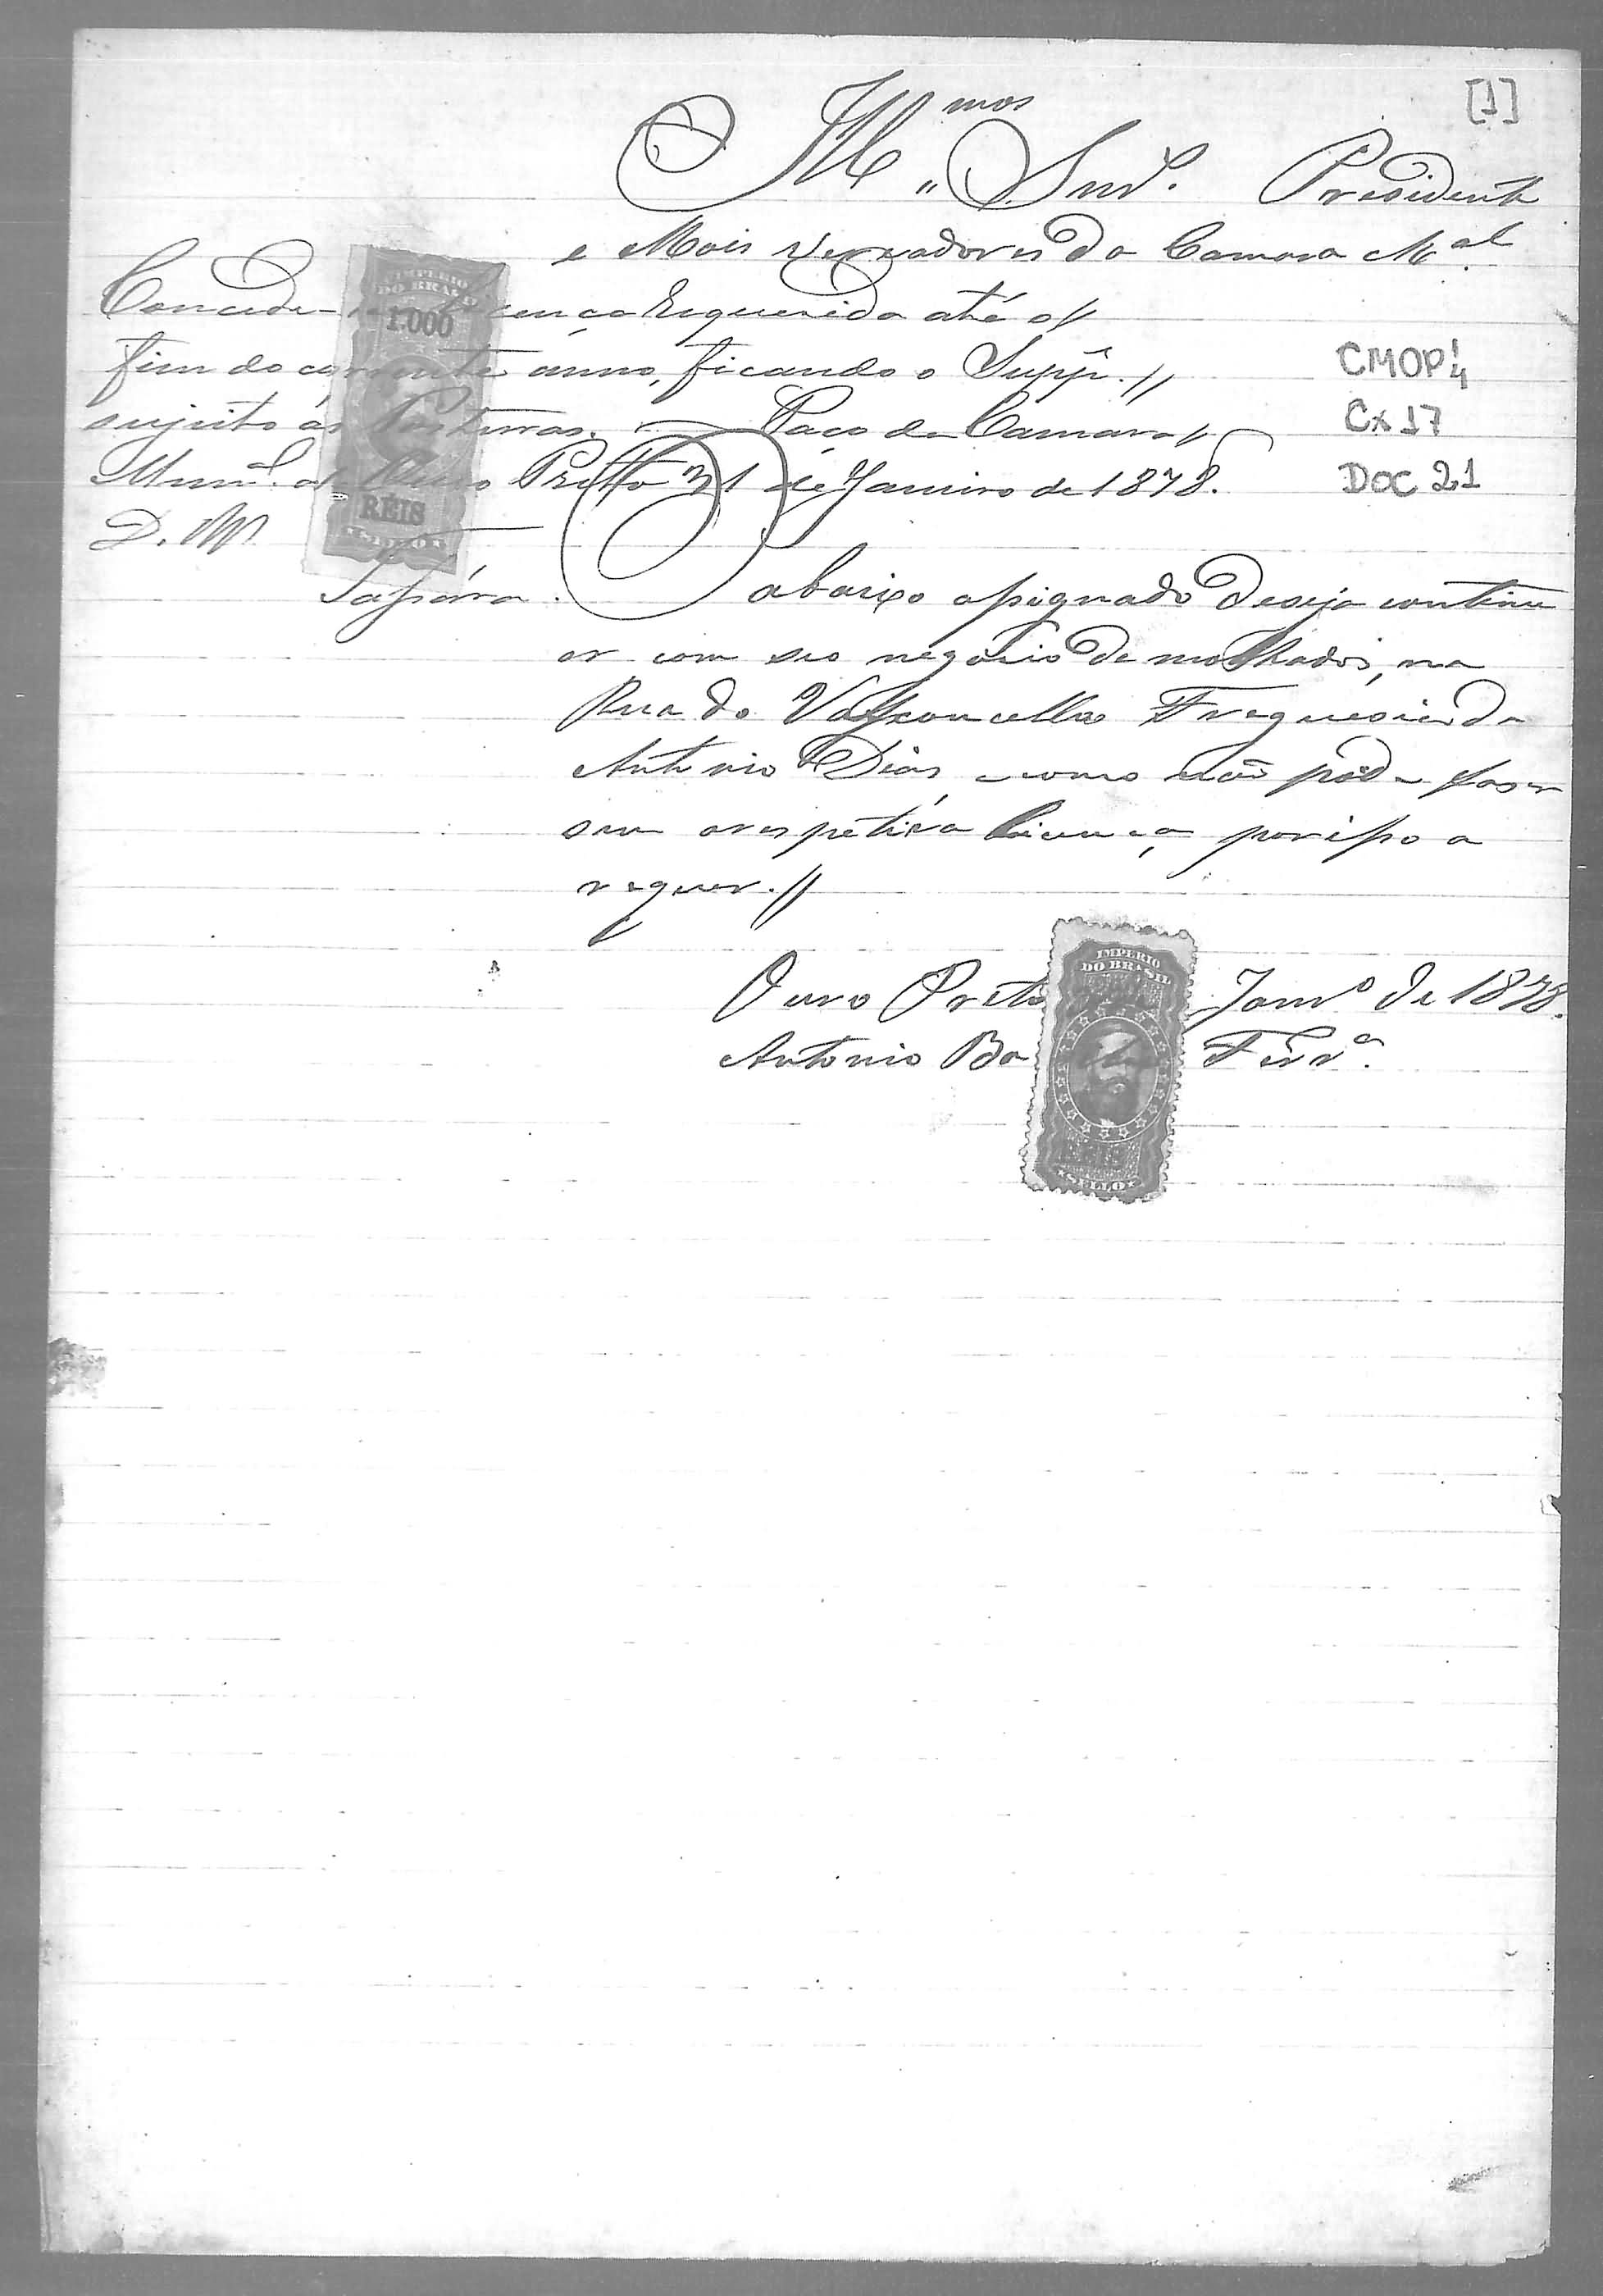 [1]
Ill.mos Snr.s Presidente
e Mais Vereadores da Camara M.al
Concede-se licença requerida até o
fim do corrente anno, ficando o Supp.e //
sujeito ás Posturas. — Paço da Camara
Mun.al de Ouro Pretto 31 de Janeiro de 1878.
D. M.
IMPERIO
DO BRASIL
1.000
REIS
SELLO
CMOP 1/4
Cx 17
DOC 21
O abaixo assignado deseja continu
ar com seo negocio de molhados, na
Rua do Vasconcellos Freguesia de
Antonio Dias, e como não póde faser
sem a respetiva licença, por isso a
requer. //
Ouro Preto Janr.o de 1878.
Antonio Ferr.a
IMPERIO
DO BRASIL
REIS
SELLO